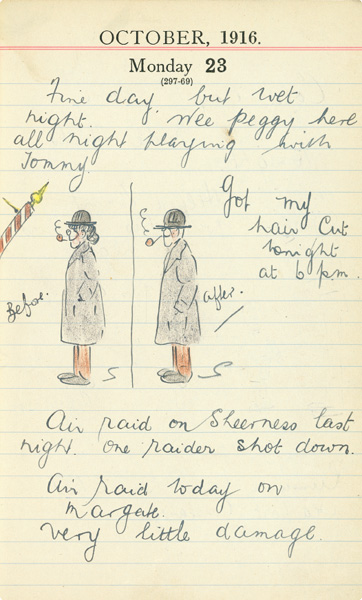 OCTOBER, 1916.
Monday 23
(297-69)
Fine day but wet
night. Wee Peggy here
all night playing with
Tommy.
Got my
hair Cut
tonight
at 6 p.m.
Befor.
after.
Air raid on Sheerness last
night. one raider shot down.
Air raid today on
Margate.
very little damage.